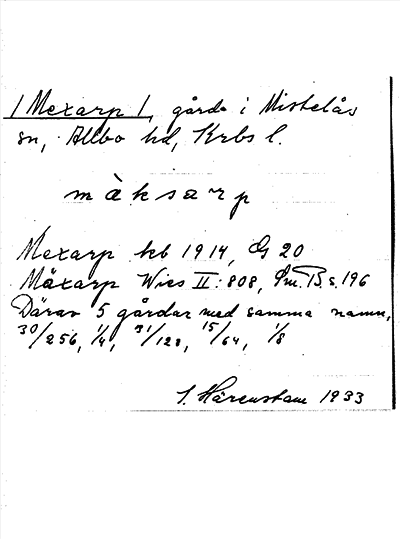 /Mexarp/, gårdar i Mistelås
sn, Allbo hd, Krbs l.
màksarp
Mexarp kb 1914, G 20
Mäxarp Wies II:808, Sm. B. s. 196
Därav 5 gårdar med samma namn,
30/256, 1/4, 31/128, 15/64, 1/8
S. Härenstam 1933